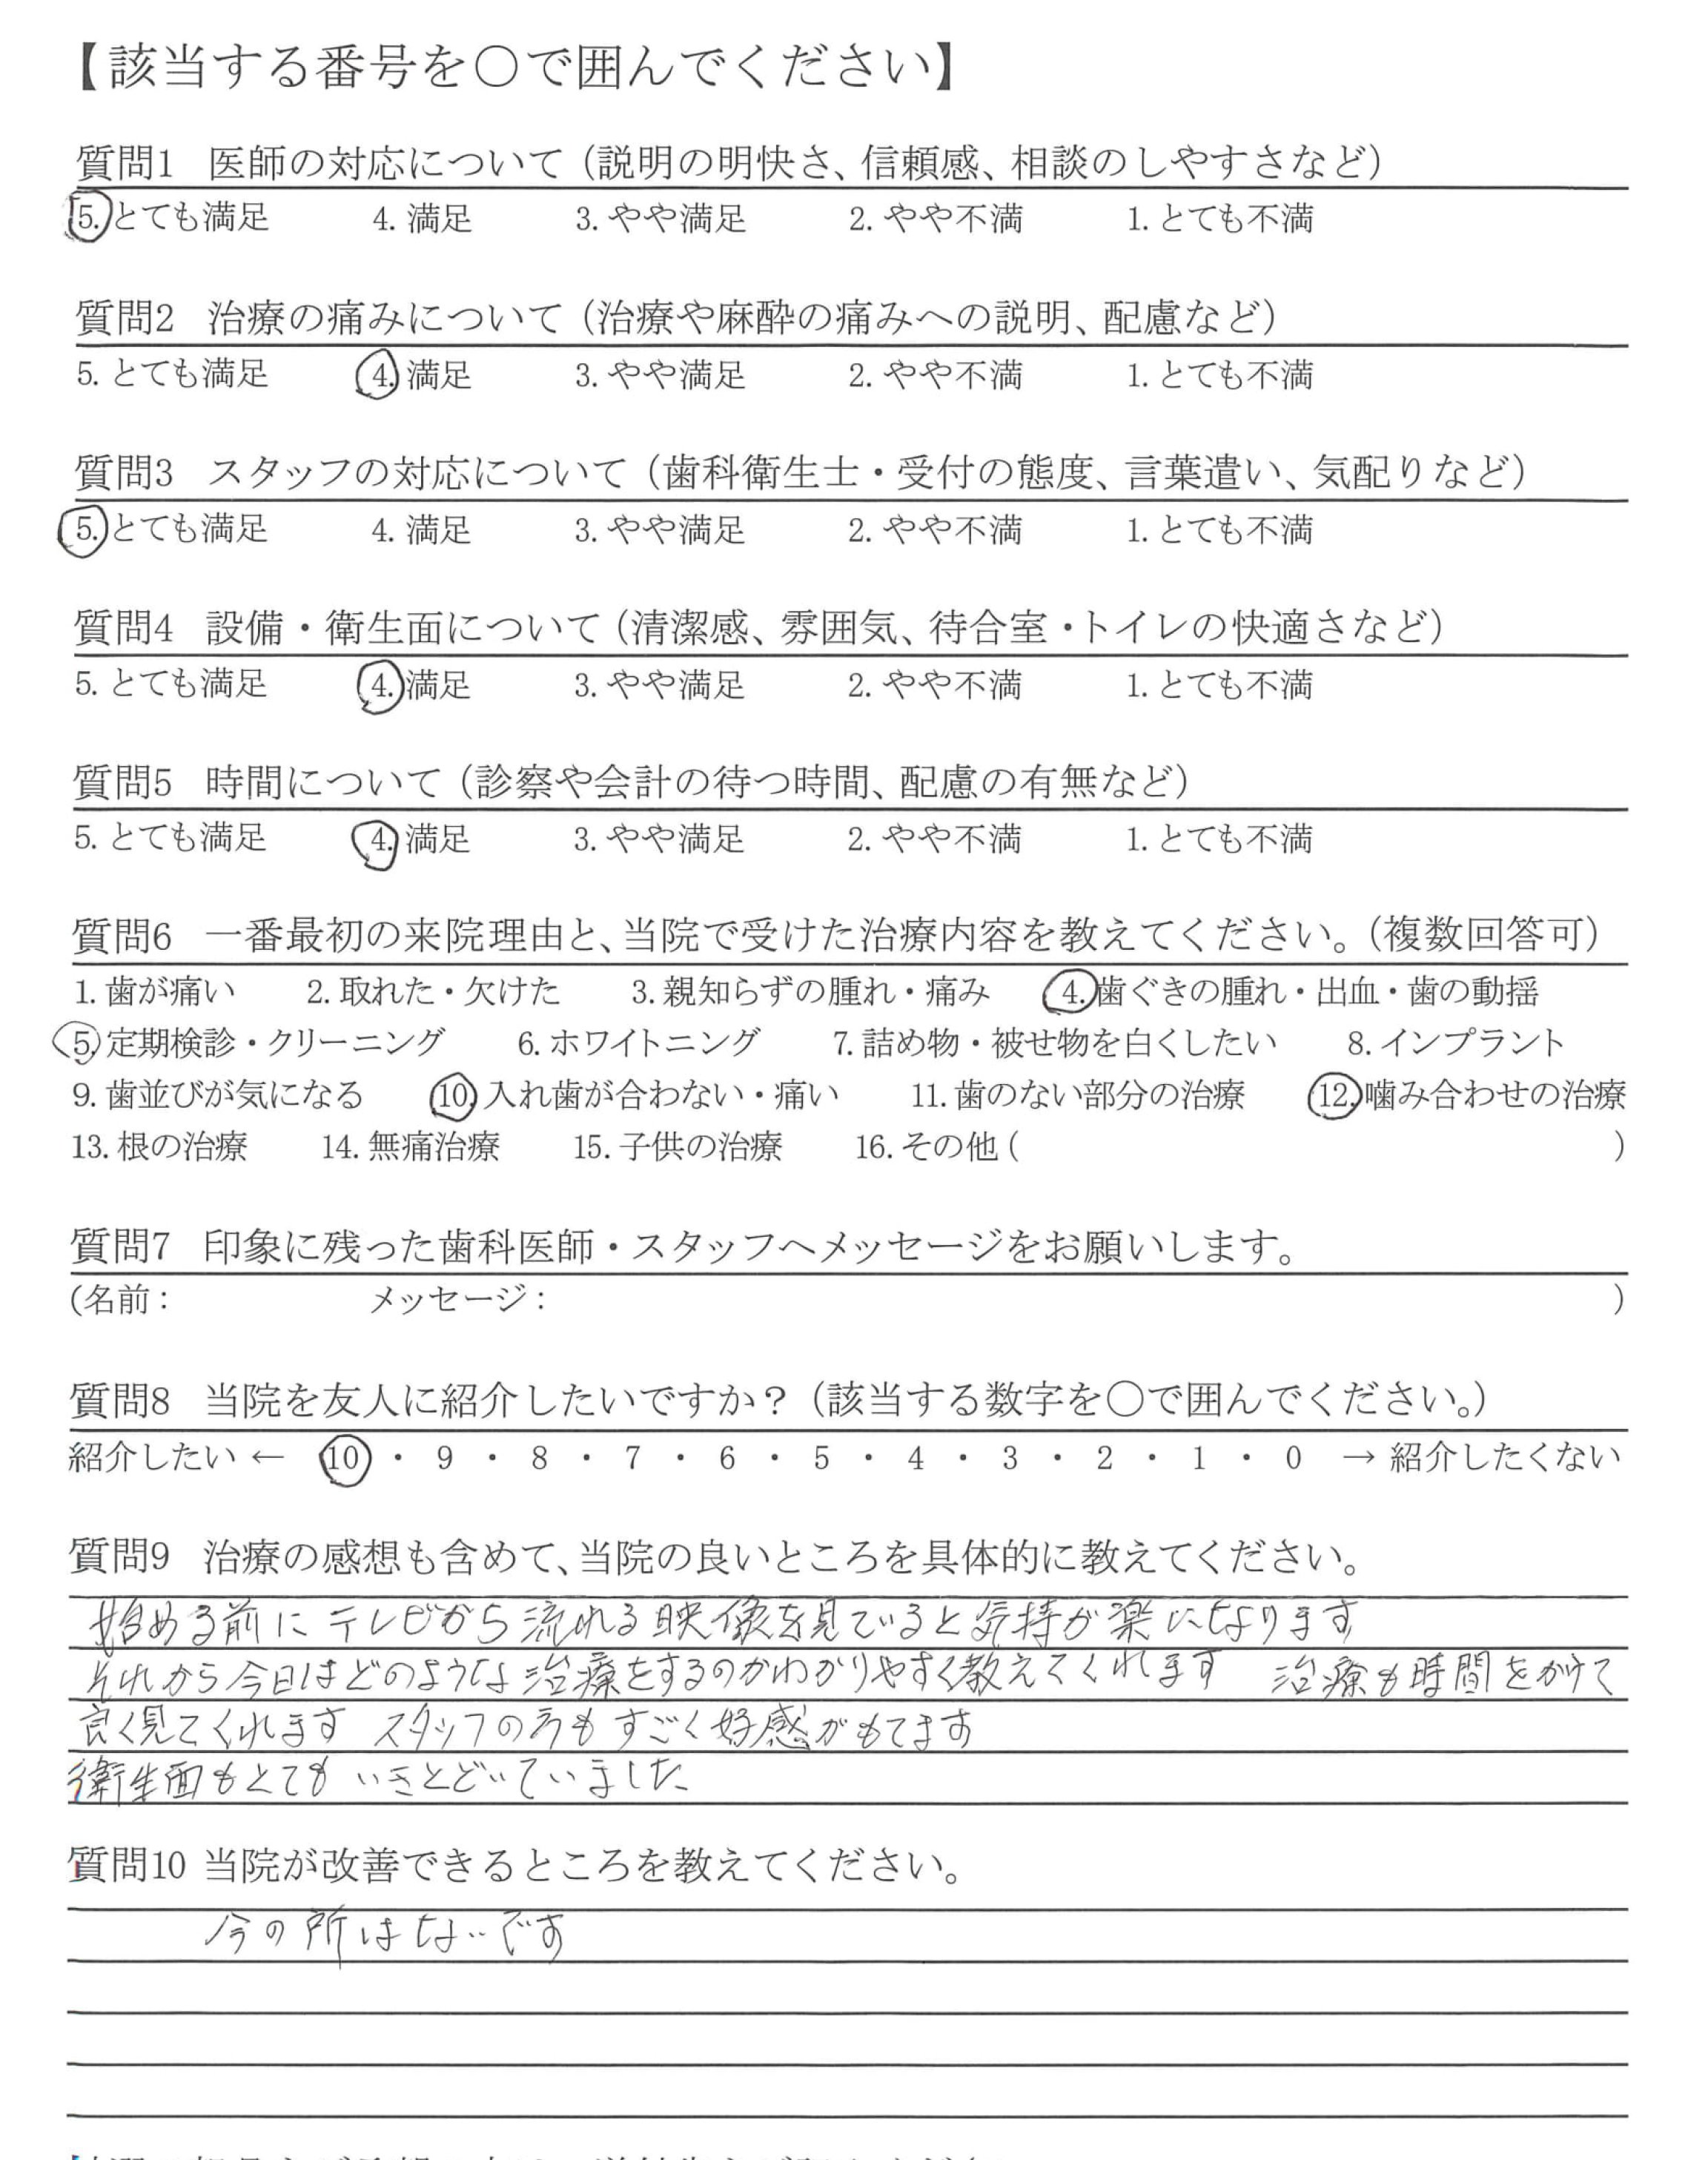 【該当する番号を〇で囲んでください】
質問1 医師の対応について（説明の明快さ、信頼感、相談のしやすさなど）
5. とても満足 4. 満足 3. やや満足 2. やや不満 1. とても不満
質問2 治療の痛みについて（治療や麻酔の痛みへの説明、配慮など）
5. とても満足 4. 満足 3. やや満足 2. やや不満 1. とても不満
質問3 スタッフの対応について（歯科衛生士・受付の態度、言葉遣い、気配りなど）
5. とても満足 4. 満足 3. やや満足 2. やや不満 1. とても不満
質問4 設備・衛生面について（清潔感、雰囲気、待合室・トイレの快適さなど）
5. とても満足 4. 満足 3. やや満足 2. やや不満 1. とても不満
質問5 時間について（診察や会計の待つ時間、配慮の有無など）
5. とても満足 4. 満足 3. やや満足 2. やや不満 1. とても不満
質問6 一番最初の来院理由と、当院で受けた治療内容を教えてください。（複数回答可）
1. 歯が痛い 2. 取れた・欠けた 3. 親知らずの腫れ・痛み 4. 歯ぐきの腫れ・出血・歯の動揺
5. 定期検診・クリーニング 6. ホワイトニング 7. 詰め物・被せ物を白くしたい 8. インプラント
9. 歯並びが気になる 10. 入れ歯が合わない・痛い 11. 歯のない部分の治療 12. 噛み合わせの治療
13. 根の治療 14. 無痛治療 15. 子供の治療 16. その他（ ）
質問7 印象に残った歯科医師・スタッフへメッセージをお願いします。
（名前： メッセージ： ）
質問8 当院を友人に紹介したいですか？（該当する数字を〇で囲んでください。）
紹介したい ← 10 ・ 9 ・ 8 ・ 7 ・ 6 ・ 5 ・ 4 ・ 3 ・ 2 ・ 1 ・ 0 → 紹介したくない
質問9 治療の感想も含めて、当院の良いところを具体的に教えてください。
始める前にテレビから流れる映像を見ていると気持が楽になります
それから今日はどのような治療をするのかわかりやすく教えてくれます 治療も時間をかけて
良く見てくれます スタッフの方もすごく好感がもてます
衛生面もとても いきとどいていました
質問10 当院が改善できるところを教えてください。
今の所はないです